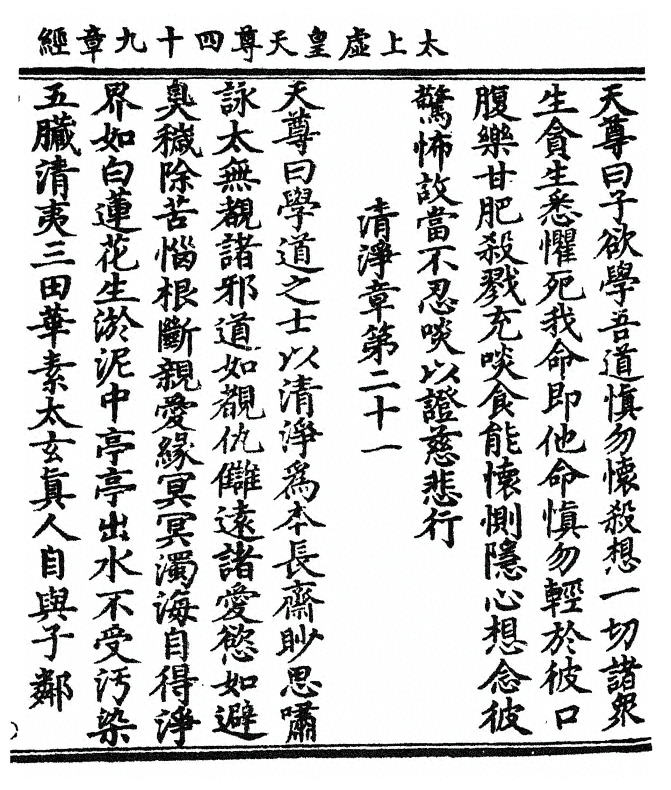 太上虛皇天尊四十九章經
天尊曰子欲學吾道愼勿懷殺想一切諸衆
生貪生悉懼死我命即他命愼勿輕於彼口
腹樂甘肥殺戮充啖食能懷惻隱心想念彼
驚怖故當不忍啖以證慈悲行
清淨章第二十一
天尊曰學道之士以清淨爲本長齋眇思嘯
詠太無覩諸邪道如覩仇讎遠諸愛慾如避
臭穢除苦惱根斷親愛緣冥冥濁海自得淨
界如白蓮花生淤泥中亭亭出水不受汚染
五臟清夷三田華素太玄眞人自與子鄰